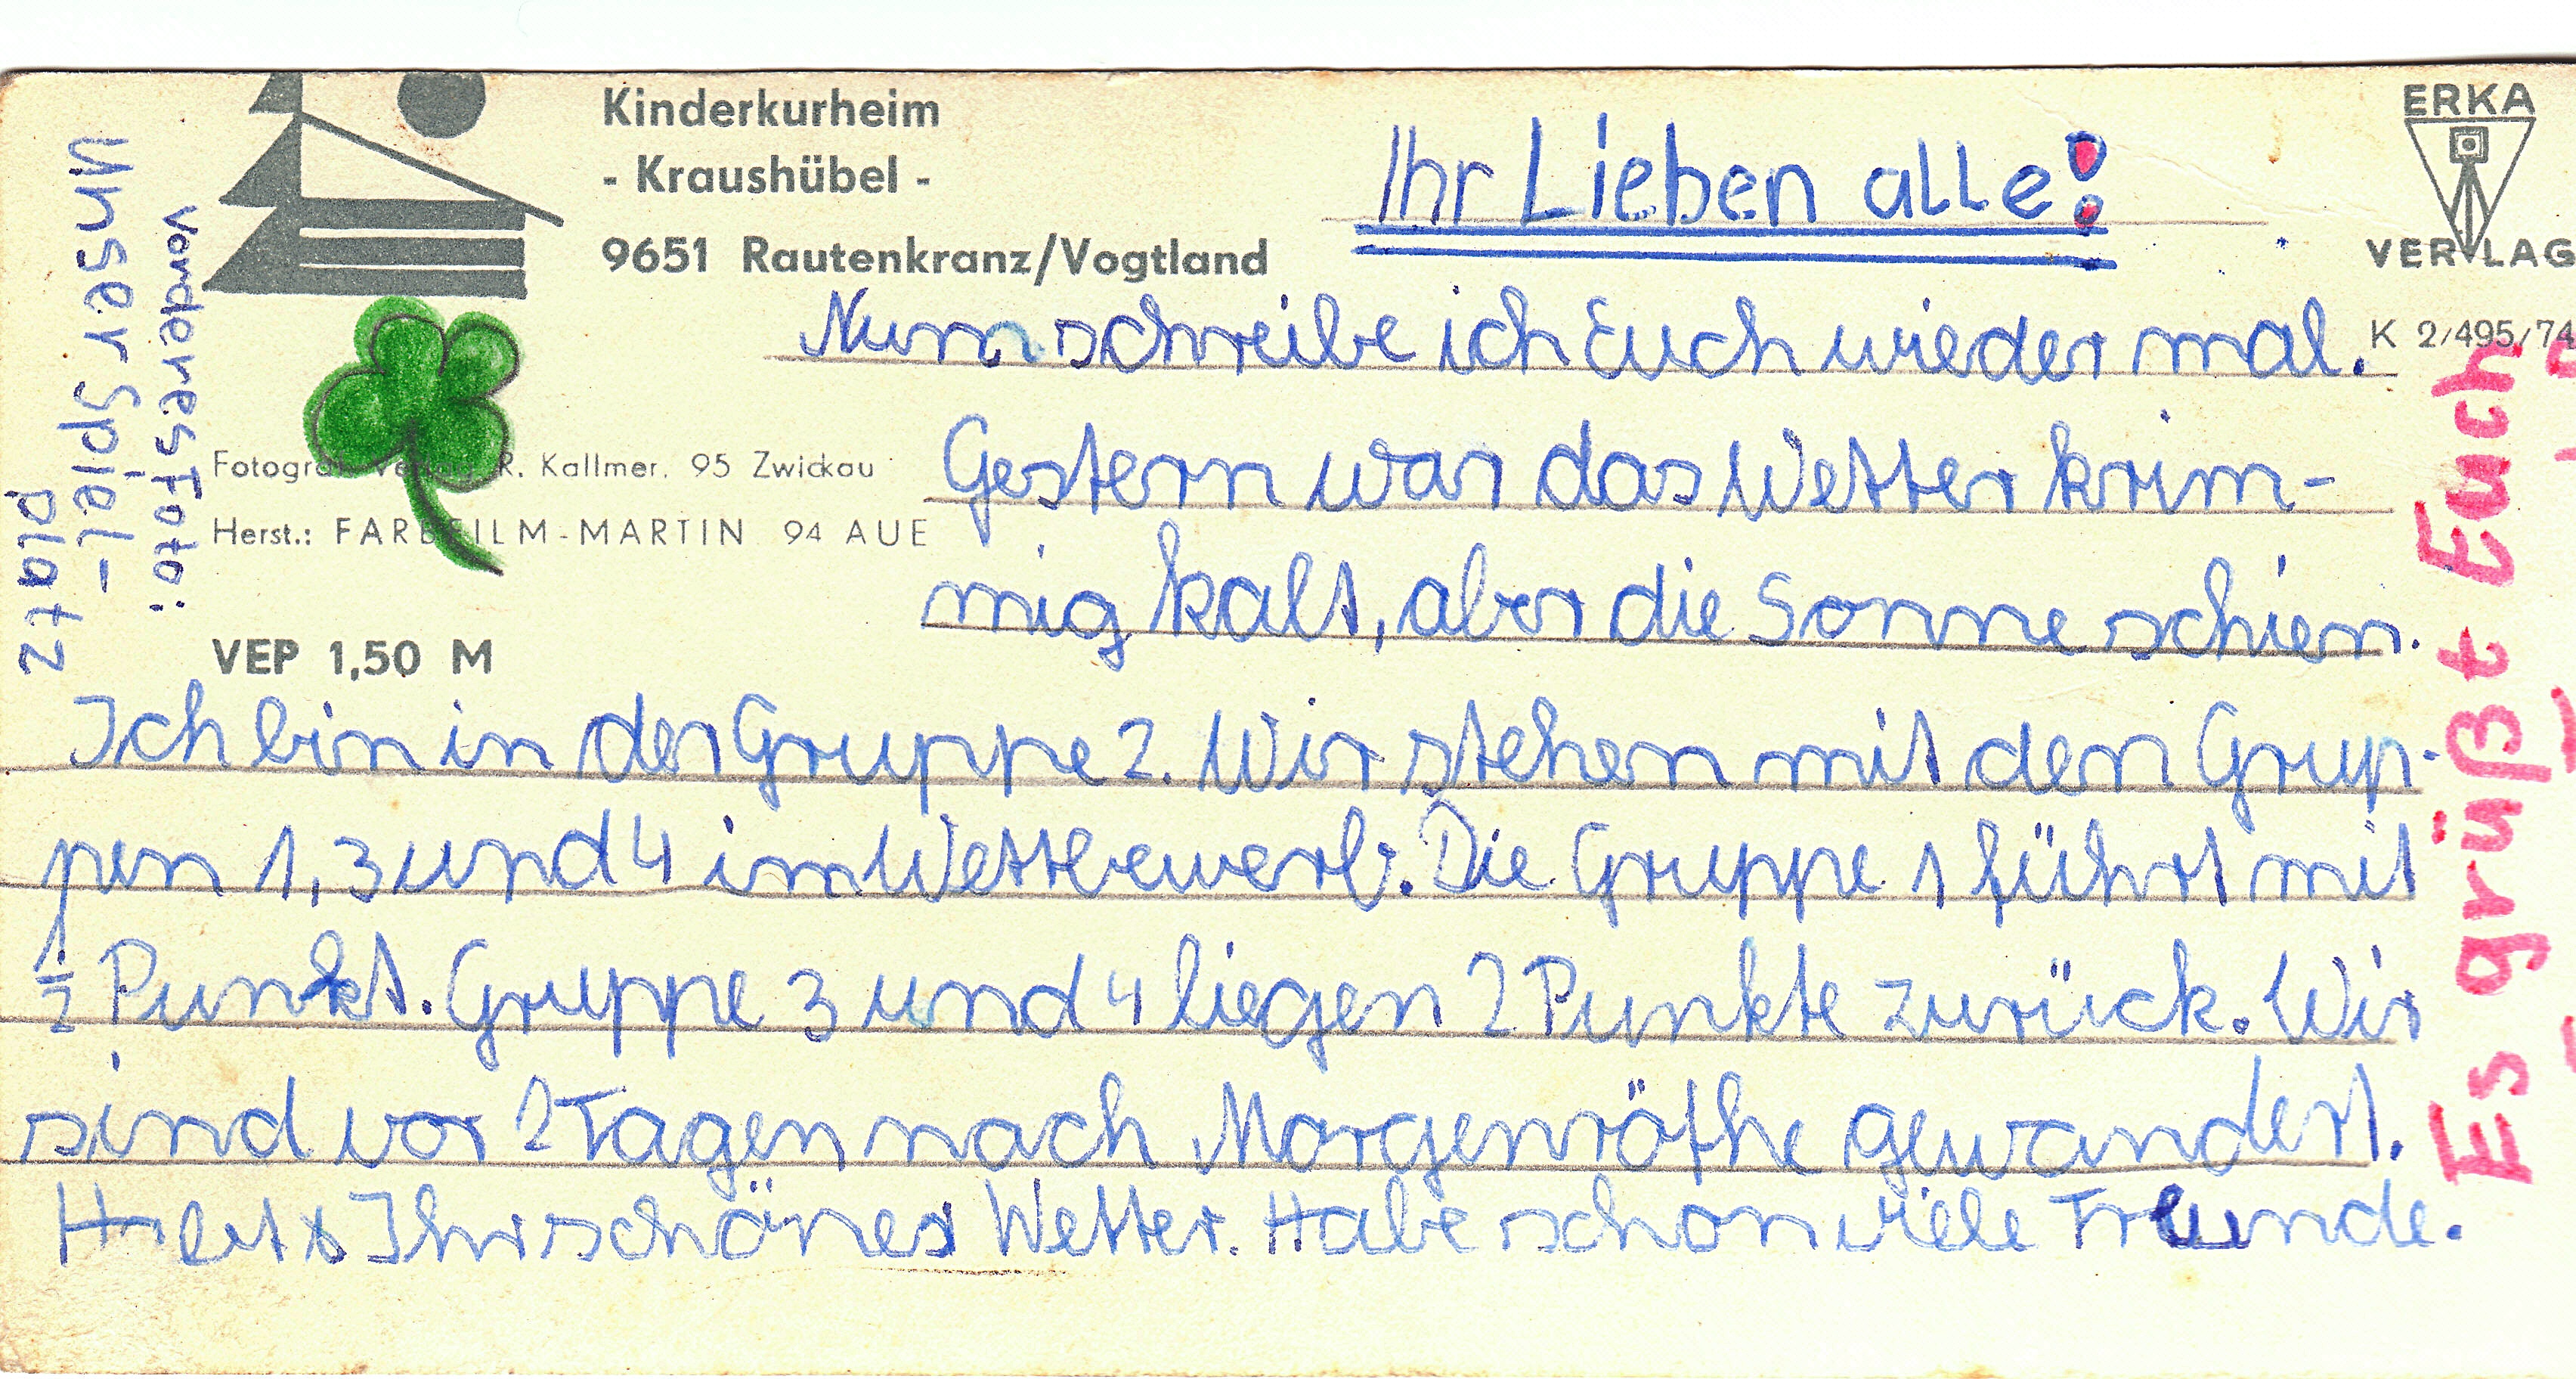 Kinderkurheim
- Kraushübel -
9651 Rautenkranz/Vogtland
ERKA
VERLAG
K 2/495/74
Fotogr. Verlag R. Kallmer, 95 Zwickau
Herst.: FARBFILM-MARTIN 94 AUE
VEP 1,50 M
Vorderes Foto:
Unser Spiel-
platz
Ihr Lieben alle!
Nun schreibe ich Euch wieder mal.
Gestern war das Wetter krim-
mig kalt, aber die Sonne schien.
Ich bin in der Gruppe 2. Wir stehen mit den Grup-
pen 1, 3 und 4 im Wettbewerb. Die Gruppe 1 führt mit
1/2 Punkt. Gruppe 3 und 4 liegen 2 Punkte zurück. Wir
sind vor 2 Tagen nach Morgenröthe gewandert.
Ihr schönes Wetter. Habe schon viele Freunde.
Es grüßt Euch